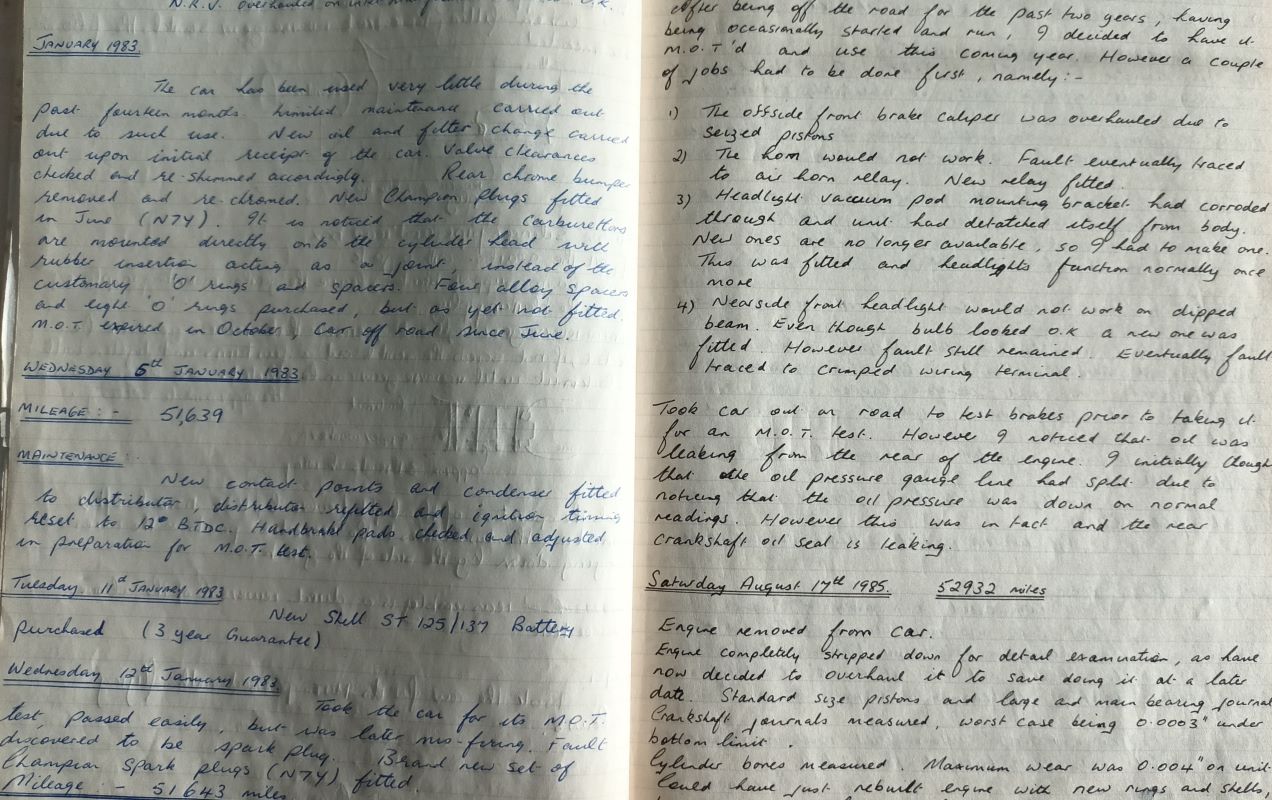 N.R.V. overhauled on
JANUARY 1983.
The car has been used very little during the
past fourteen months. Limited maintenance carried out
due to such use. New oil and filter change carried
out upon initial receipt of the car. Valve clearances
checked and re-shimmed accordingly. Rear chrome bumper
removed and re-chromed. New Champion plugs fitted
in June (N7Y). It is noticed that the carburettors
are mounted directly onto the cylinder head with
rubber insertion acting as a joint, instead of the
customary 'O' rings and spacers. Four alloy spacers
and eight 'O' rings purchased, but as yet not fitted.
M.O.T. expired in October, Car off road since June.
WEDNESDAY 5th JANUARY 1983.
MILEAGE :- 51,639
MAINTENANCE :-
New contact points and condenser fitted
to distributor, distributor refitted and ignition timing
reset to 12° B.T.D.C. Handbrake pads checked and adjusted
in preparation for M.O.T. test.
Tuesday 11th JANUARY 1983
New Shell ST 125/137 Battery
purchased (3 year Guarantee)
Wednesday 12th January 1983.
Took the car for its M.O.T.
test, passed easily, but was later mis-firing. Fault
discovered to be spark plug. Brand new set of
Champion Spark plugs (N7Y) fitted.
Mileage :- 51643 miles
After being off the road for the past two years, having
being occasionally started and run, I decided to have it
M.O.T'd and use this coming year. However a couple
of jobs had to be done first, namely:-
1) The offside front brake caliper was overhauled due to
seized pistons
2) The horn would not work. Fault eventually traced
to air horn relay. New relay fitted.
3) Headlight vacuum pod mounting bracket had corroded
through and unit had detatched itself from body.
New ones are no longer available, so I had to make one.
This was fitted and headlights function normally once
more
4) Nearside front headlight would not work on dipped
beam. Even though bulb looked O.K a new one was
fitted. However fault still remained. Eventually fault
traced to crimped wiring terminal.
Took car out on road to test brakes prior to taking it
for an M.O.T. test. However I noticed that oil was
leaking from the rear of the engine. I initially though
that the oil pressure gauge line had split due to
noticing that the oil pressure was down on normal
readings. However this was in fact and the rear
crankshaft oil seal is leaking.
Saturday August 17th 1985. 52932 miles
Engine removed from car.
Engine completely stripped down for detail examination, as have
now decided to overhaul it to save doing it at a later
date. Standard size pistons and large and main bearing journal
Crankshaft journals measured, worst case being 0.0003" under
bottom limit.
Cylinder bores measured. Maximum wear was 0.004" on
Could have just rebuilt engine with new rings and shells,